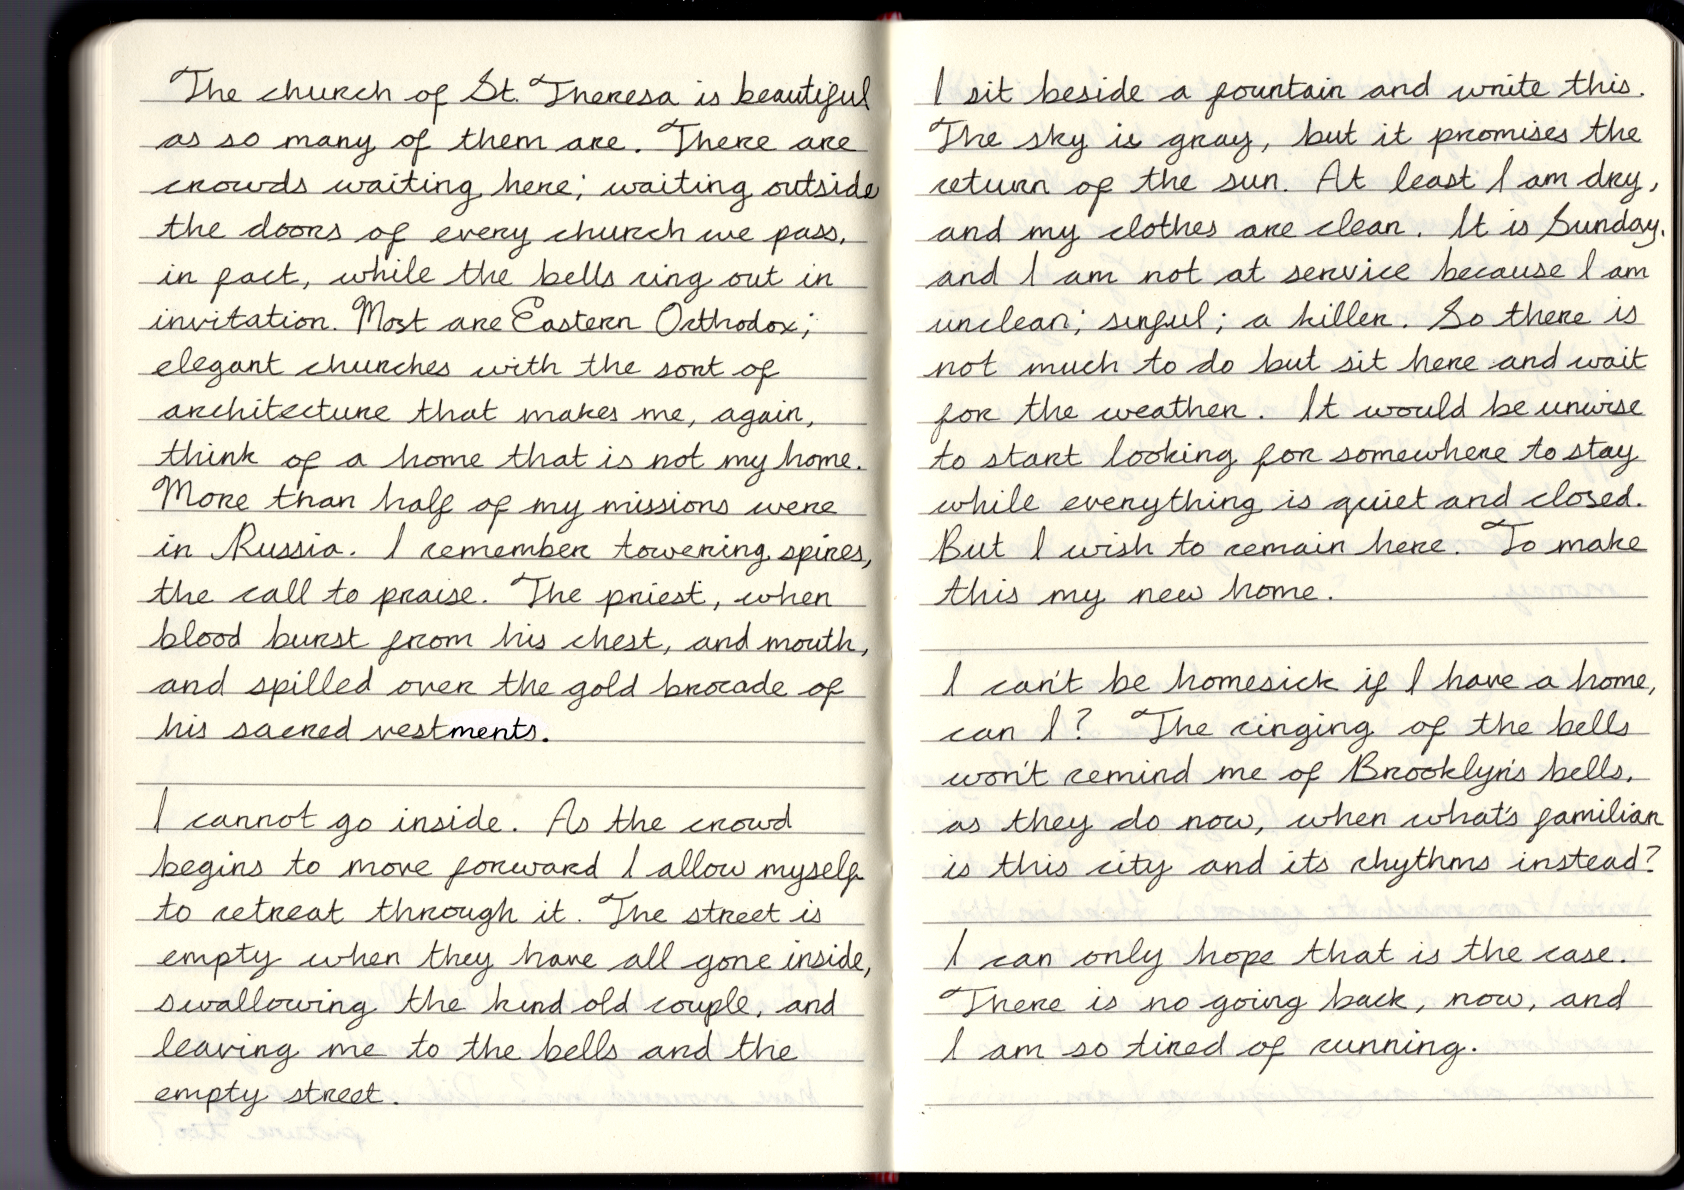 The church of St. Theresa is beautiful
as so many of them are. There are
crowds waiting here; waiting outside
the doors of every church we pass,
in fact, while the bells ring out in
invitation. Most are Eastern Orthodox;
elegant churches with the sort of
architecture that makes me, again,
think of a home that is not my home.
More than half of my missions were
in Russia. I remember towering spires,
the call to praise. The priest, when
blood burst from his chest, and mouth,
and spilled over the gold brocade of
his sacred vestments.
I cannot go inside. As the crowd
begins to move forward I allow myself
to retreat through it. The street is
empty when they have all gone inside,
swallowing the kind old couple, and
leaving me to the bells and the
empty street.
I sit beside a fountain and write this.
The sky is gray, but it promises the
return of the sun. At least I am dry,
and my clothes are clean. It is Sunday,
and I am not at service because I am
unclean; sinful; a killer. So there is
not much to do but sit here and wait
for the weather. It would be unwise
to start looking for somewhere to stay
while everything is quiet and closed.
But I wish to remain here. To make
this my new home.
I can't be homesick if I have a home,
can I? The ringing of the bells
won't remind me of Brooklyn's bells,
as they do now, when what's familiar
is this city and its rhythms instead?
I can only hope that is the case.
There is no going back, now, and
I am so tired of running.